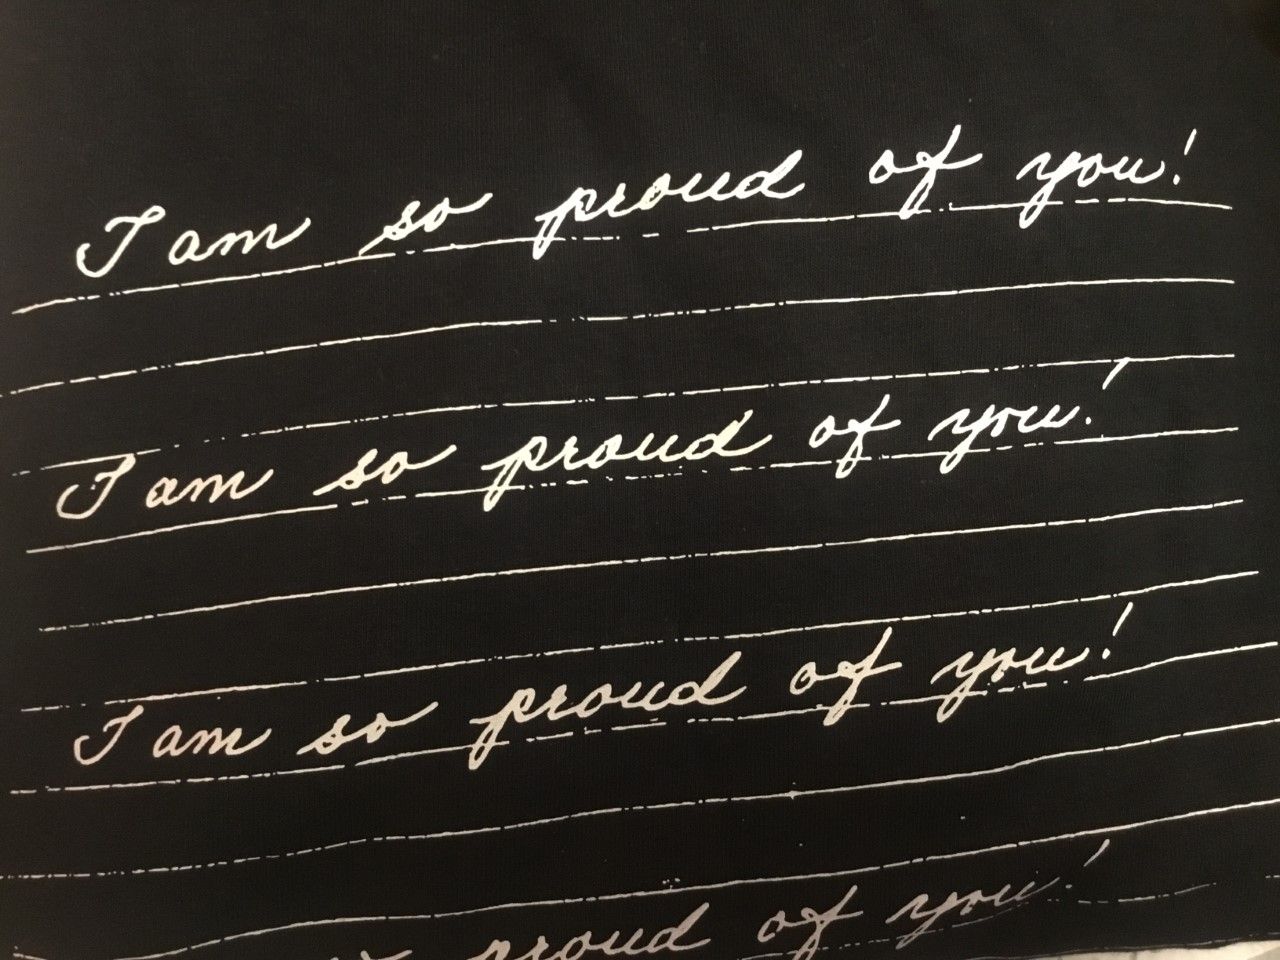 I am so proud of you!
I am so proud of you!
I am so proud of you!
proud of you!